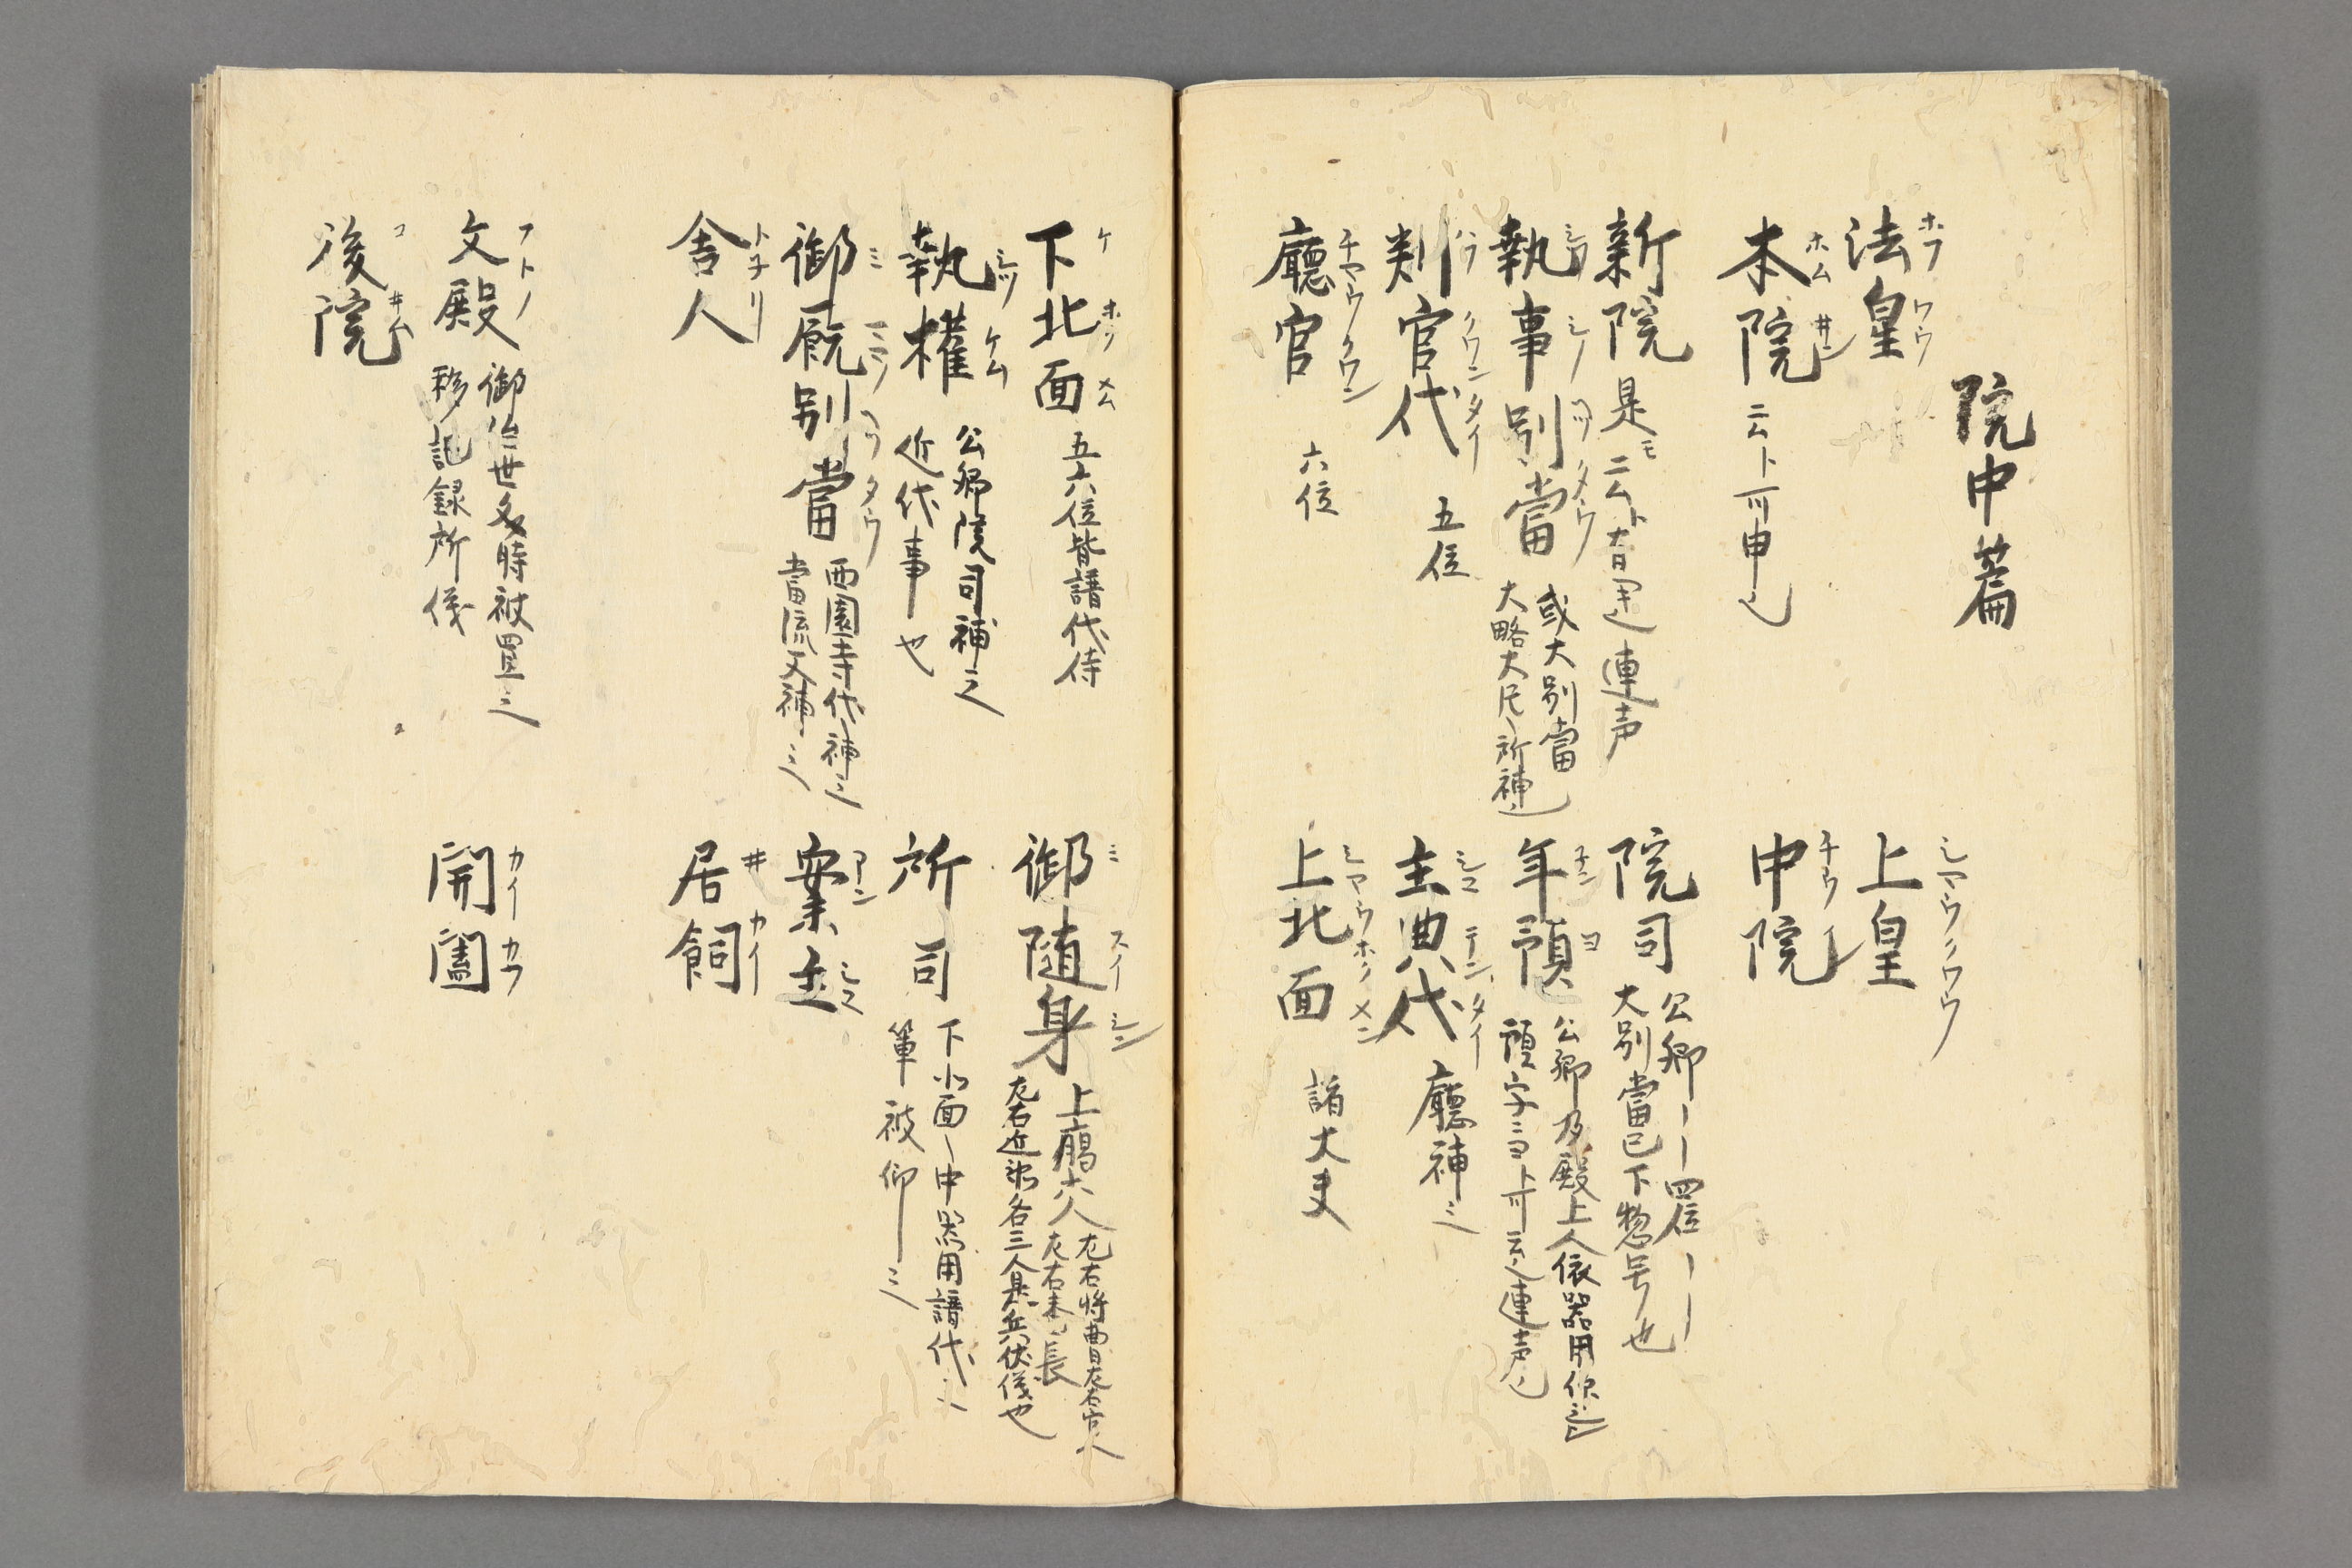 院中篇
法皇 ホフ ワウ
上皇 シヤウクワウ
本院 ホム井ン ニムト可申也
中院 チウ
新院 是モ
連声
院司 公卿ーー四位ーー
大別當已下惣号也
執事別當 シツシノヘツタウ 或大別當
大略大臣所補
年預 子ンヨ 公卿及殿上人依器用
預字ヨト可云連声也
判官代 ハウクワンタイ 五位
主典代 シユテンタイ 廳補之
廳官 チヤウクワン 六位
上北面 シヤウホクメン 諸大夫
下北面 ケホクメム 五六位皆譜代侍
御随身 ミスイシン 上臈六人 左右将曹左右官人
左右番長
左右近衆各三人是兵伏儀也
執權 シツケム 公卿院司補之
近代事也
所司 下北面ノ中器用譜代
輩被仰之
御厩別當 ミ ヘツタウ 西園寺代々補之
當流又補之
案主 アンシユ
舎人 トチリ
居飼 井カイ
文殿 フトノ 御治世之時被置之
移記録所儀
開闔 カイカフ
後院 コ井ム